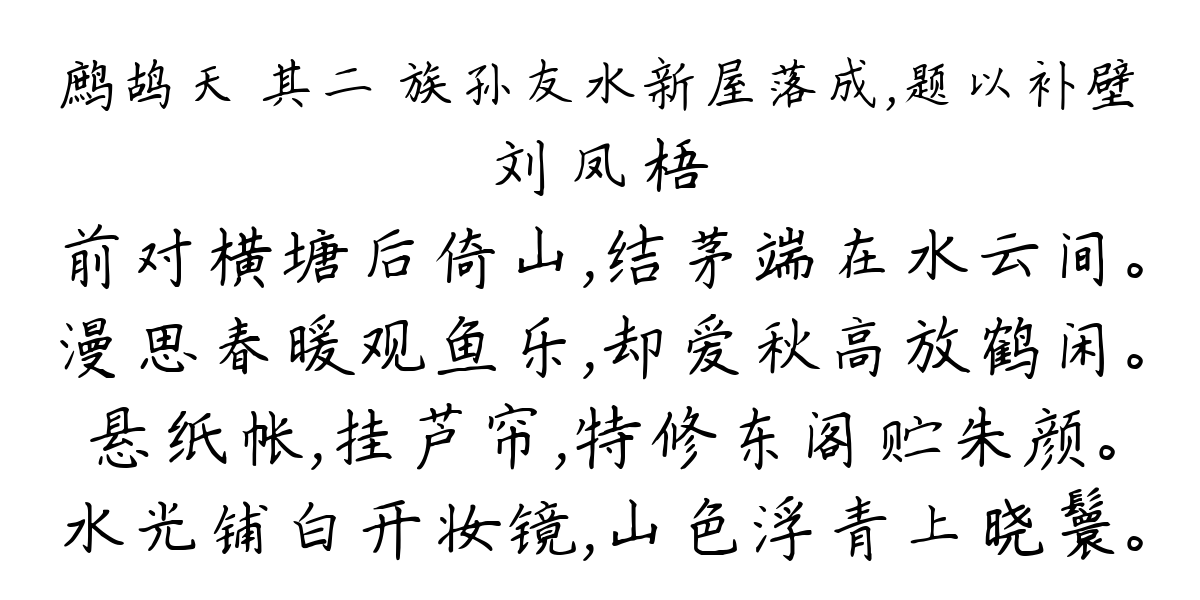 鹧鸪天 其二 族孙友水新屋落成,题以补壁
刘凤梧
前对横塘后倚山,结茅端在水云间。
漫思春暖观鱼乐,却爱秋高放鹤闲。
悬纸帐,挂芦帘,特修东阁贮朱颜。
水光铺白开妆镜,山色浮青上晓鬟。